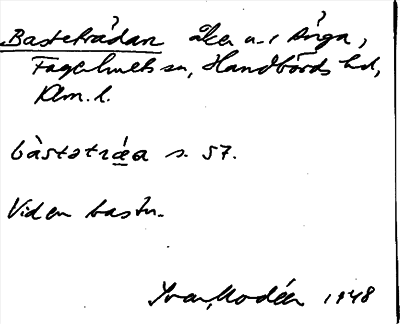 Basteträdan åker u. Ånga,
Fagelhults sn, Handbörds hd,
Klm. l.
bàstətræ̀a s. 57.
Vid en bastu.
Ivar Modéer 1948